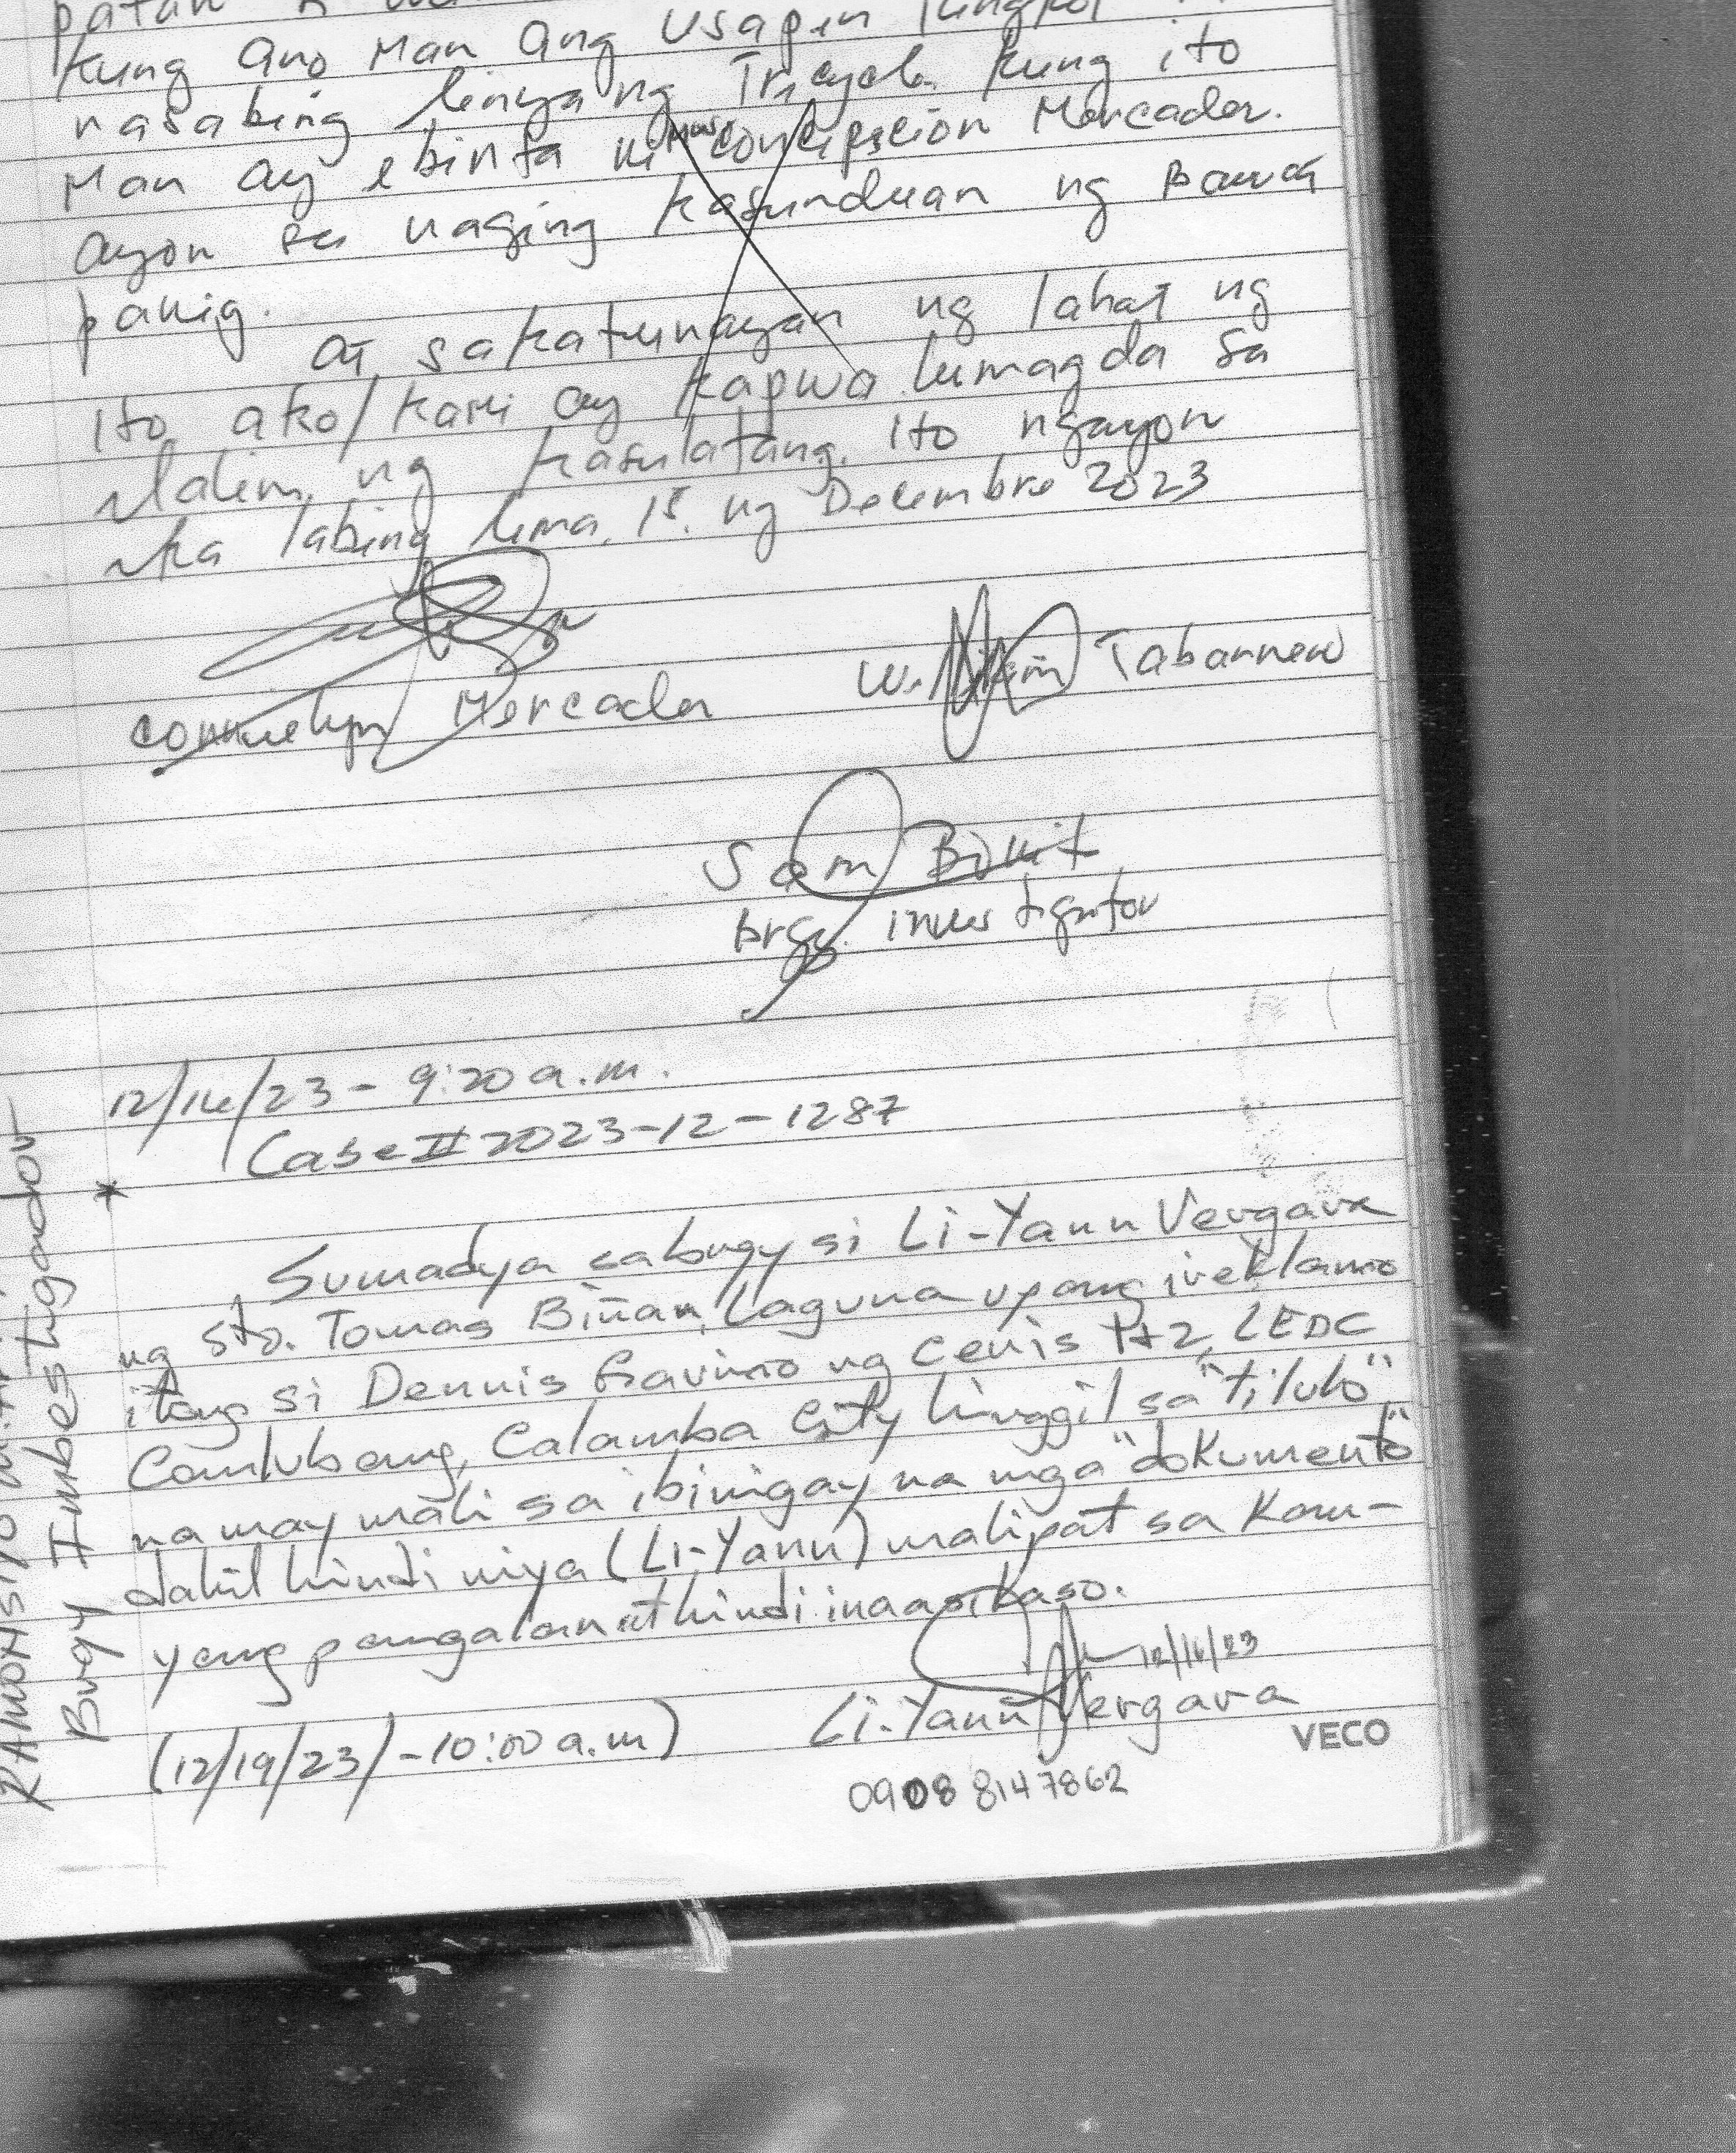 kung ano Man ang usapin tungkol
nasabing linya ng Tricycle kung ito
Man ay ebinta ni concepcion Mercader.
ayon sa naging kasunduan ng Bawat
panig.
At sa katunayan ng lahat ng
ito ako/kami ay kapwa lumagda sa
Ilalim ng kasulatang ito ngayon
ika labing lima, 15 ng Decembre 2023
Mercader
William Tabannero
Sam
brgy. investigator
12/16/23 - 9:20 a.m.
Case # 2023-12-1287
*
Sumadya sa brgy si Li-Yann Vergara
ng Sto. Tomas Biñan, Laguna upang ireklamo
itong si Dennis Gavino ng Ceris 1+2, LEDC
Canlubang, Calamba City hinggil sa "titulo"
na may mali sa ibinigay na mga "dokumento"
dahil hindi niya (Li-Yann) malipat sa kan-
yang pangalan at hindi inaasikaso.
12/16/23
Li-Yann Vergara
(12/19/23) - 10:00 a.m)
VECO
0908 8147862
Brgy Imbestigador